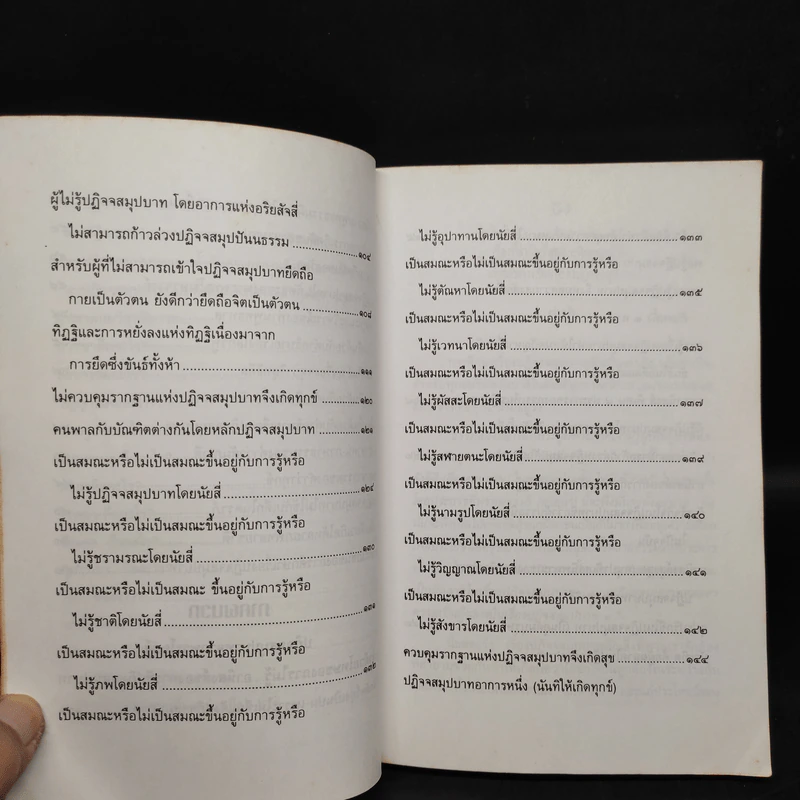 ผู้ไม่รู้ปฏิจจสมุปบาท โดยอาการแห่งอริยสัจสี่
ไม่สามารถก้าวล่วงปฏิจจสมุปปันนธรรม ๑๐๔
สำหรับผู้ที่ไม่สามารถเข้าใจปฏิจจสมุปบาทยึดถือ
กายเป็นตัวตน ยังดีกว่ายึดถือจิตเป็นตัวตน ๑๐๘
ทิฏฐิและการหยั่งลงแห่งทิฏฐิเนื่องมาจาก
การยึดซึ่งขันธ์ทั้งห้า ๑๑๑
ไม่ควบคุมรากฐานแห่งปฏิจจสมุปบาทจึงเกิดทุกข์ ๑๒๐
คนพาลกับบัณฑิตต่างกันโดยหลักปฏิจจสมุปบาท ๑๒๑
เป็นสมณะหรือไม่เป็นสมณะขึ้นอยู่กับการรู้หรือ
ไม่รู้ปฏิจจสมุปบาทโดยนัยสี่ ๑๒๔
เป็นสมณะหรือไม่เป็นสมณะขึ้นอยู่กับการรู้หรือ
ไม่รู้ชรามรณะโดยนัยสี่ ๑๓๐
เป็นสมณะหรือไม่เป็นสมณะ ขึ้นอยู่กับการรู้หรือ
ไม่รู้ชาติโดยนัยสี่ ๑๓๑
เป็นสมณะหรือไม่เป็นสมณะขึ้นอยู่กับการรู้หรือ
ไม่รู้ภพโดยนัยสี่ ๑๓๒
เป็นสมณะหรือไม่เป็นสมณะขึ้นอยู่กับการรู้หรือ
ไม่รู้อุปาทานโดยนัยสี่ ๑๓๓
เป็นสมณะหรือไม่เป็นสมณะขึ้นอยู่กับการรู้หรือ
ไม่รู้ตัณหาโดยนัยสี่ ๑๓๕
เป็นสมณะหรือไม่เป็นสมณะขึ้นอยู่กับการรู้หรือ
ไม่รู้เวทนาโดยนัยสี่ ๑๓๖
เป็นสมณะหรือไม่เป็นสมณะขึ้นอยู่กับการรู้หรือ
ไม่รู้ผัสสะโดยนัยสี่ ๑๓๗
เป็นสมณะหรือไม่เป็นสมณะขึ้นอยู่กับการรู้หรือ
ไม่รู้สฬายตนะโดยนัยสี่ ๑๓๙
เป็นสมณะหรือไม่เป็นสมณะขึ้นอยู่กับการรู้หรือ
ไม่รู้นามรูปโดยนัยสี่ ๑๔๐
เป็นสมณะหรือไม่เป็นสมณะขึ้นอยู่กับการรู้หรือ
ไม่รู้วิญญาณโดยนัยสี่ ๑๔๑
เป็นสมณะหรือไม่เป็นสมณะขึ้นอยู่กับการรู้หรือ
ไม่รู้สังขารโดยนัยสี่ ๑๔๒
ควบคุมรากฐานแห่งปฏิจจสมุปบาทจึงเกิดสุข ๑๔๔
ปฏิจจสมุปบาทอาการหนึ่ง (นันทิให้เกิดทุกข์)